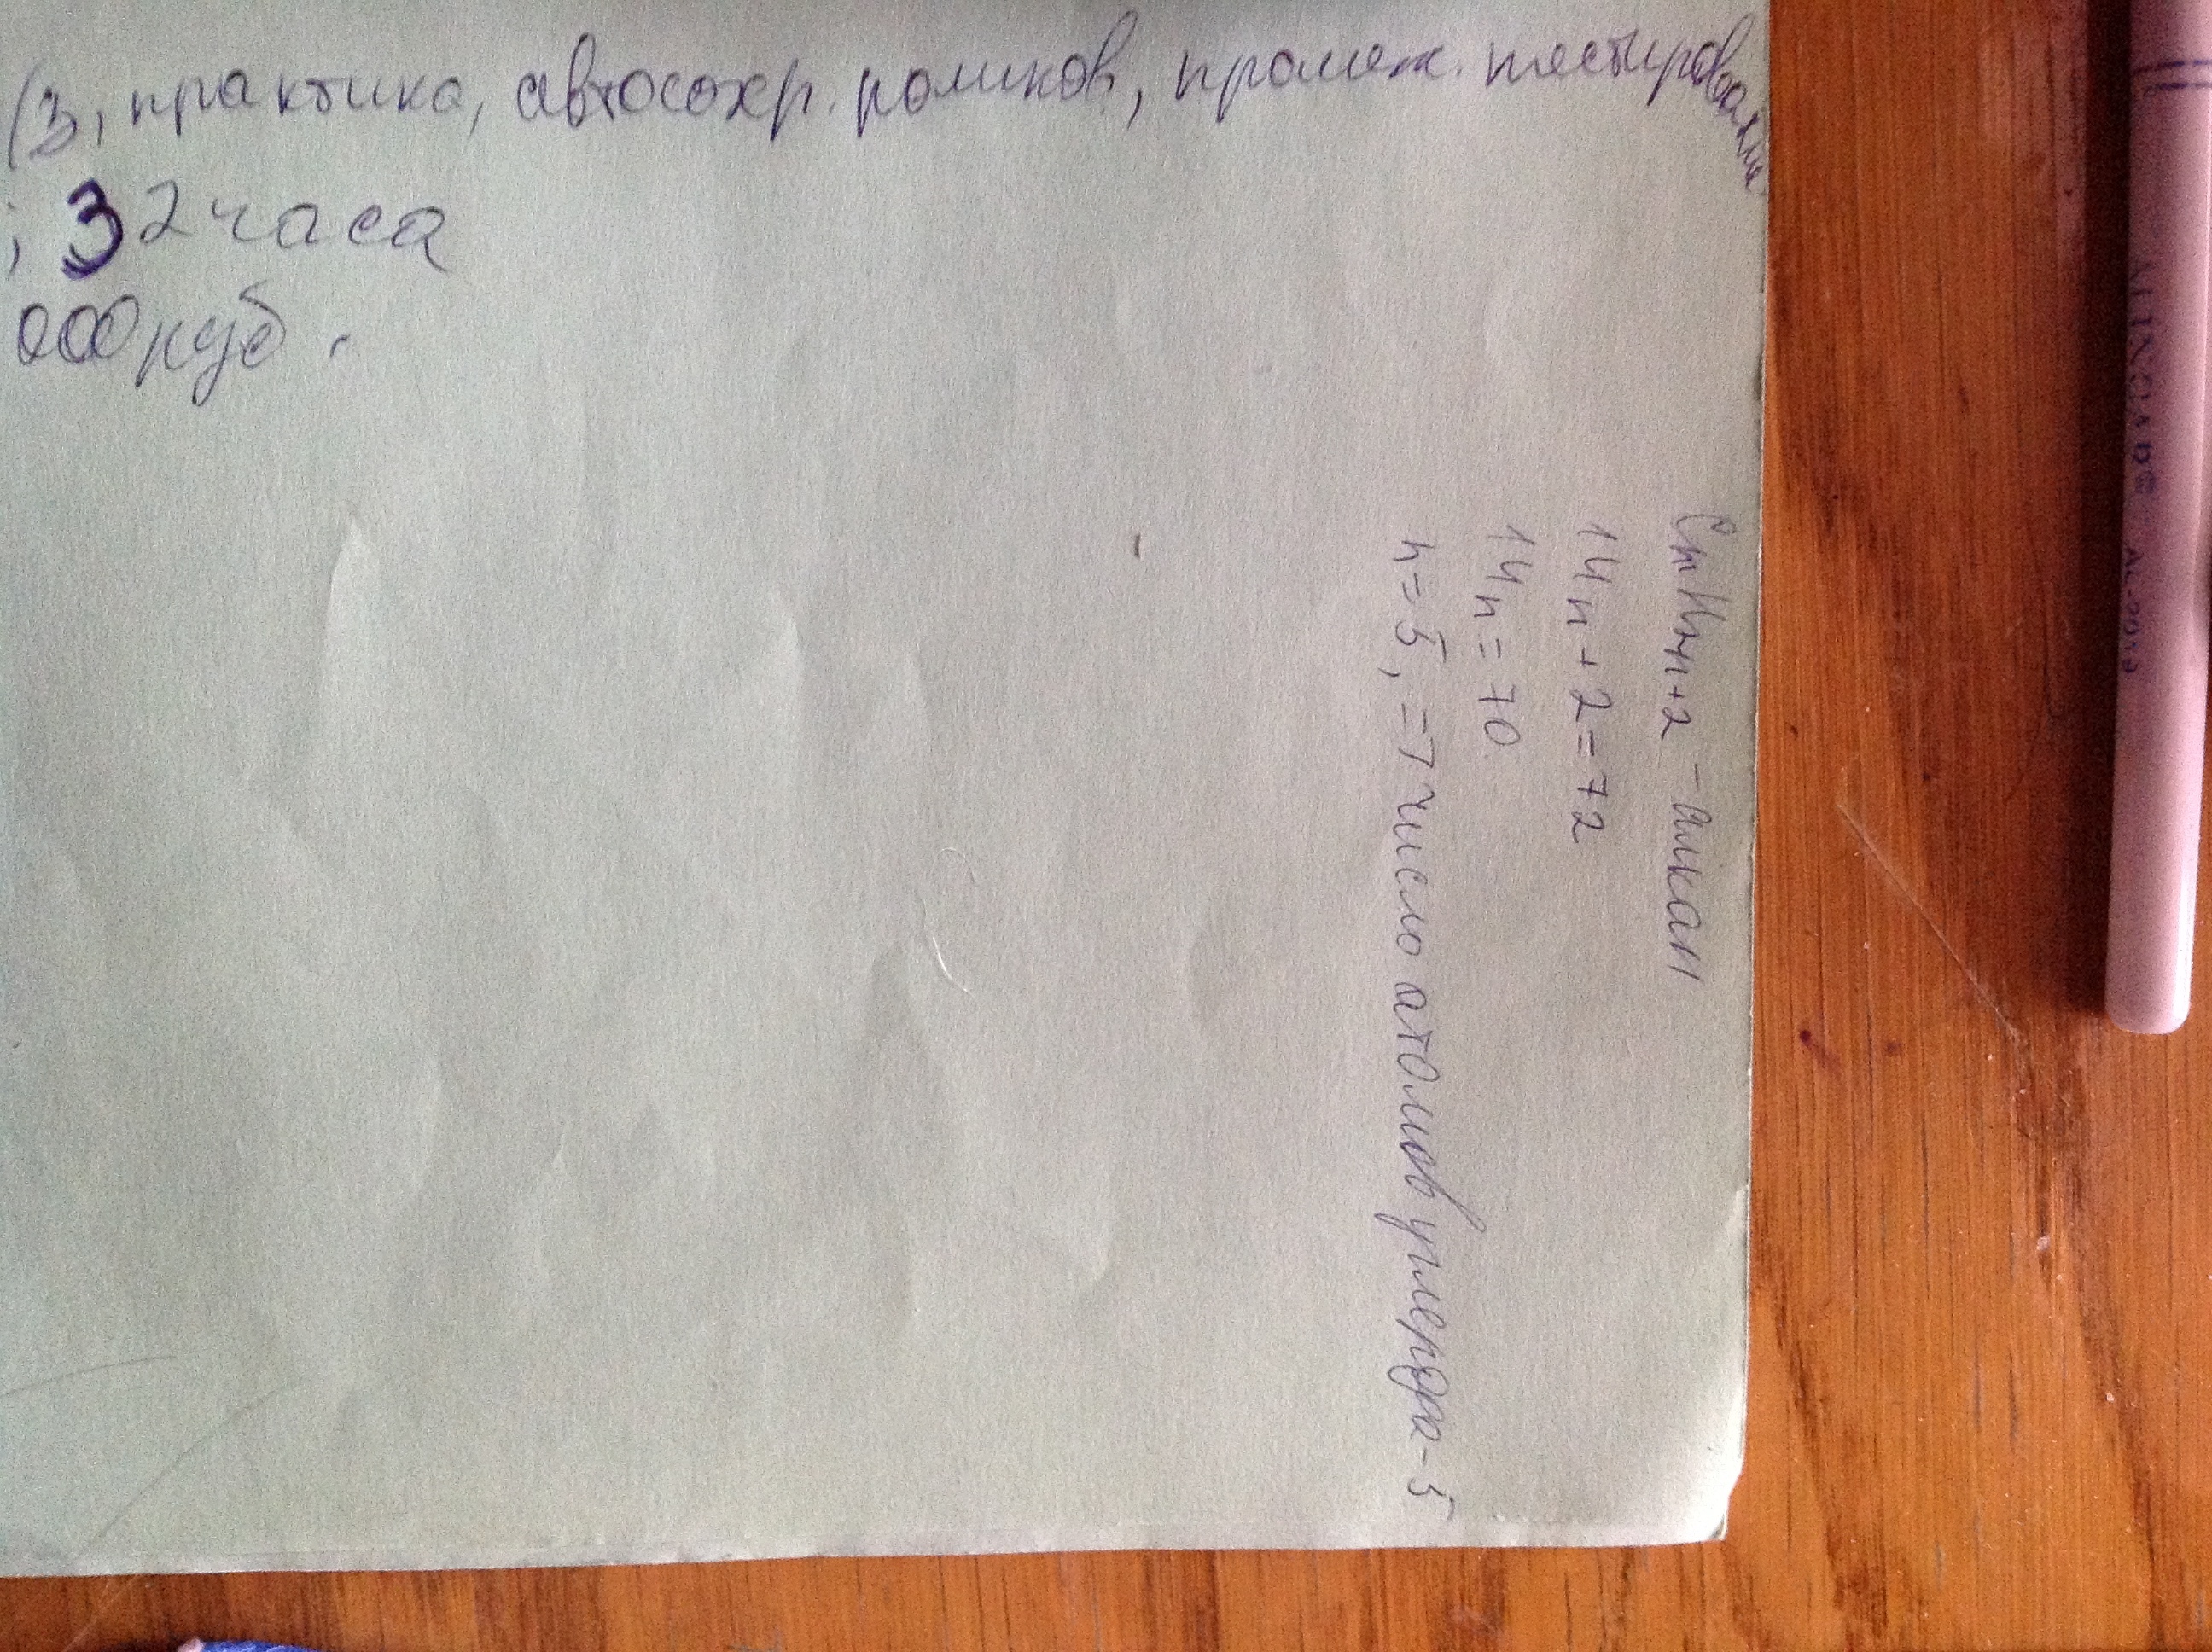 (3, практика, автосохр. роликов, промеж. тестирование
; 32 часа
000 руб.
CnH2n+2 - алкан
14n + 2 = 72
14n = 70
n = 5, => число атомов углерода - 5